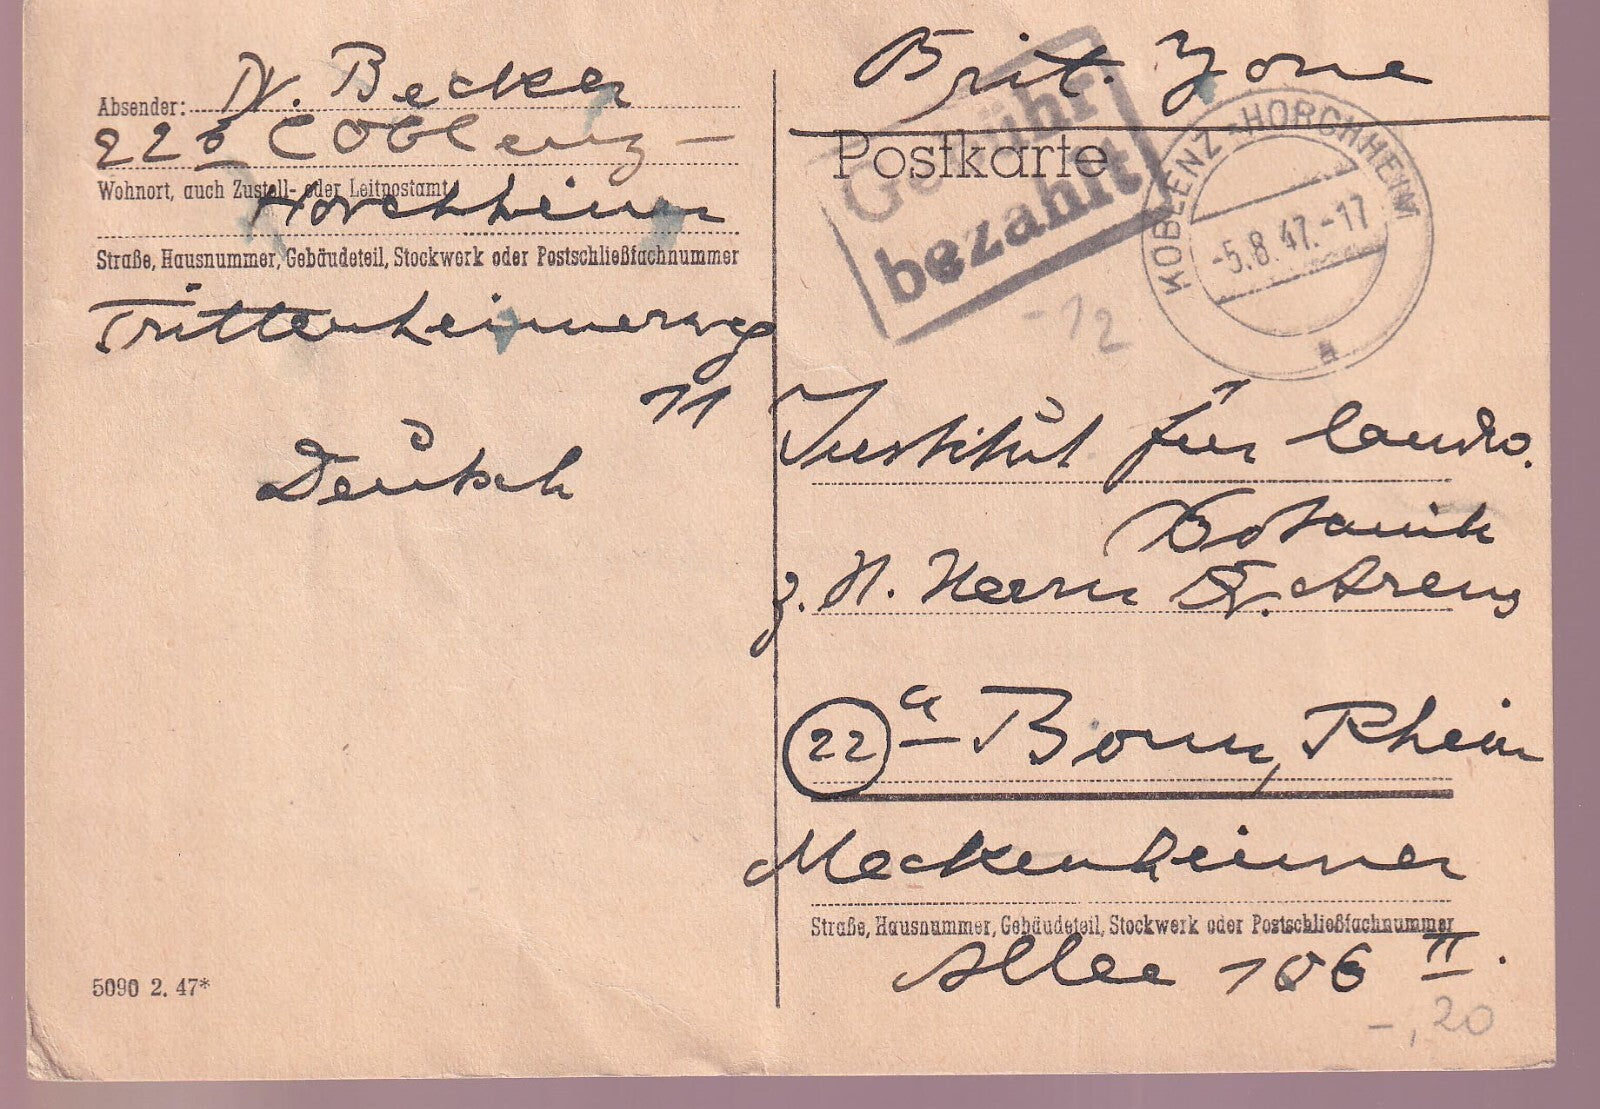 Absender: Dr. Becker
22b Coblenz-
Wohnort, auch Zustell- oder Leitpostamt
Horchheim
Straße, Hausnummer, Gebäudeteil, Stockwerk oder Postschließfachnummer
Trittenheimerweg
11
Deutsch
5090 2. 47*
Brit. Zone
Postkarte
Gebühr
bezahlt
KOBLENZ-HORCHHEIM
-5.8.47.-17
a
-12
Institut für landw.
Botanik
z. H. Herrn Dr. Arens
22a Bonn, Rhein
Meckenheimer
Straße, Hausnummer, Gebäudeteil, Stockwerk oder Postschließfachnummer
Allee 106 II.
-,20